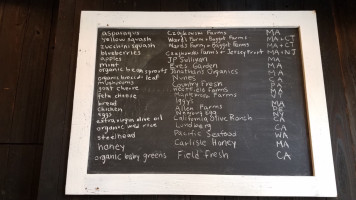 asparagus Czajkowski Farms MA
yellow squash Ward's Farm + Baggott Farms MA + CT
zucchini squash Ward's Farm + Baggott Farms MA + CT
blueberries Czajkowski Farms + Jersey Fruit MA + NJ
apples JP Sullivan MA
mint Eva's Garden MA
organic bean sprouts Jonathan's Organics MA
organic broccoli leaf Nunes CA
mushrooms Country Fresh PA
goat cheese Westfield Farms MA
feta cheese Maplebrook Farms
bread Iggy's MA
chicken Allen Farms MA
eggs Egg NY
extra virgin olive oil California Olive Ranch CA
organic wild rice Lundberg CA
steelhead Pacific Seafood WA
honey Carlisle Honey MA
organic baby greens Field Fresh CA